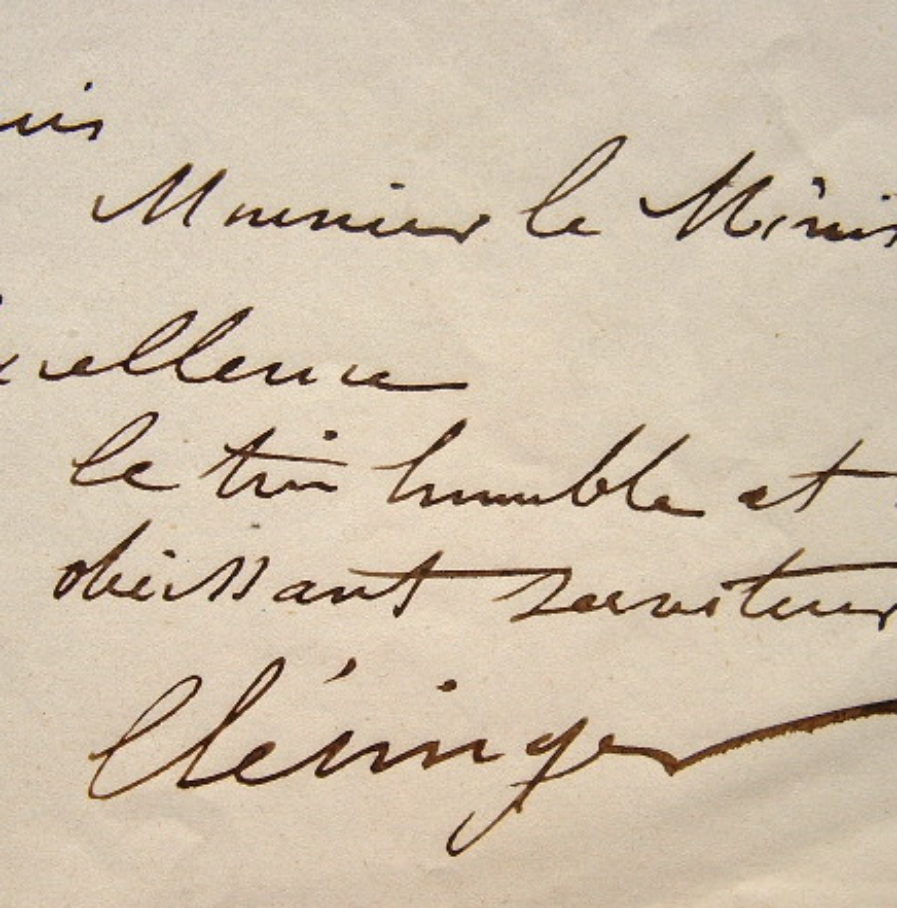 suis
Monsieur le Minis
xcellence
le très humble et
obéissant serviteur
Clésinger